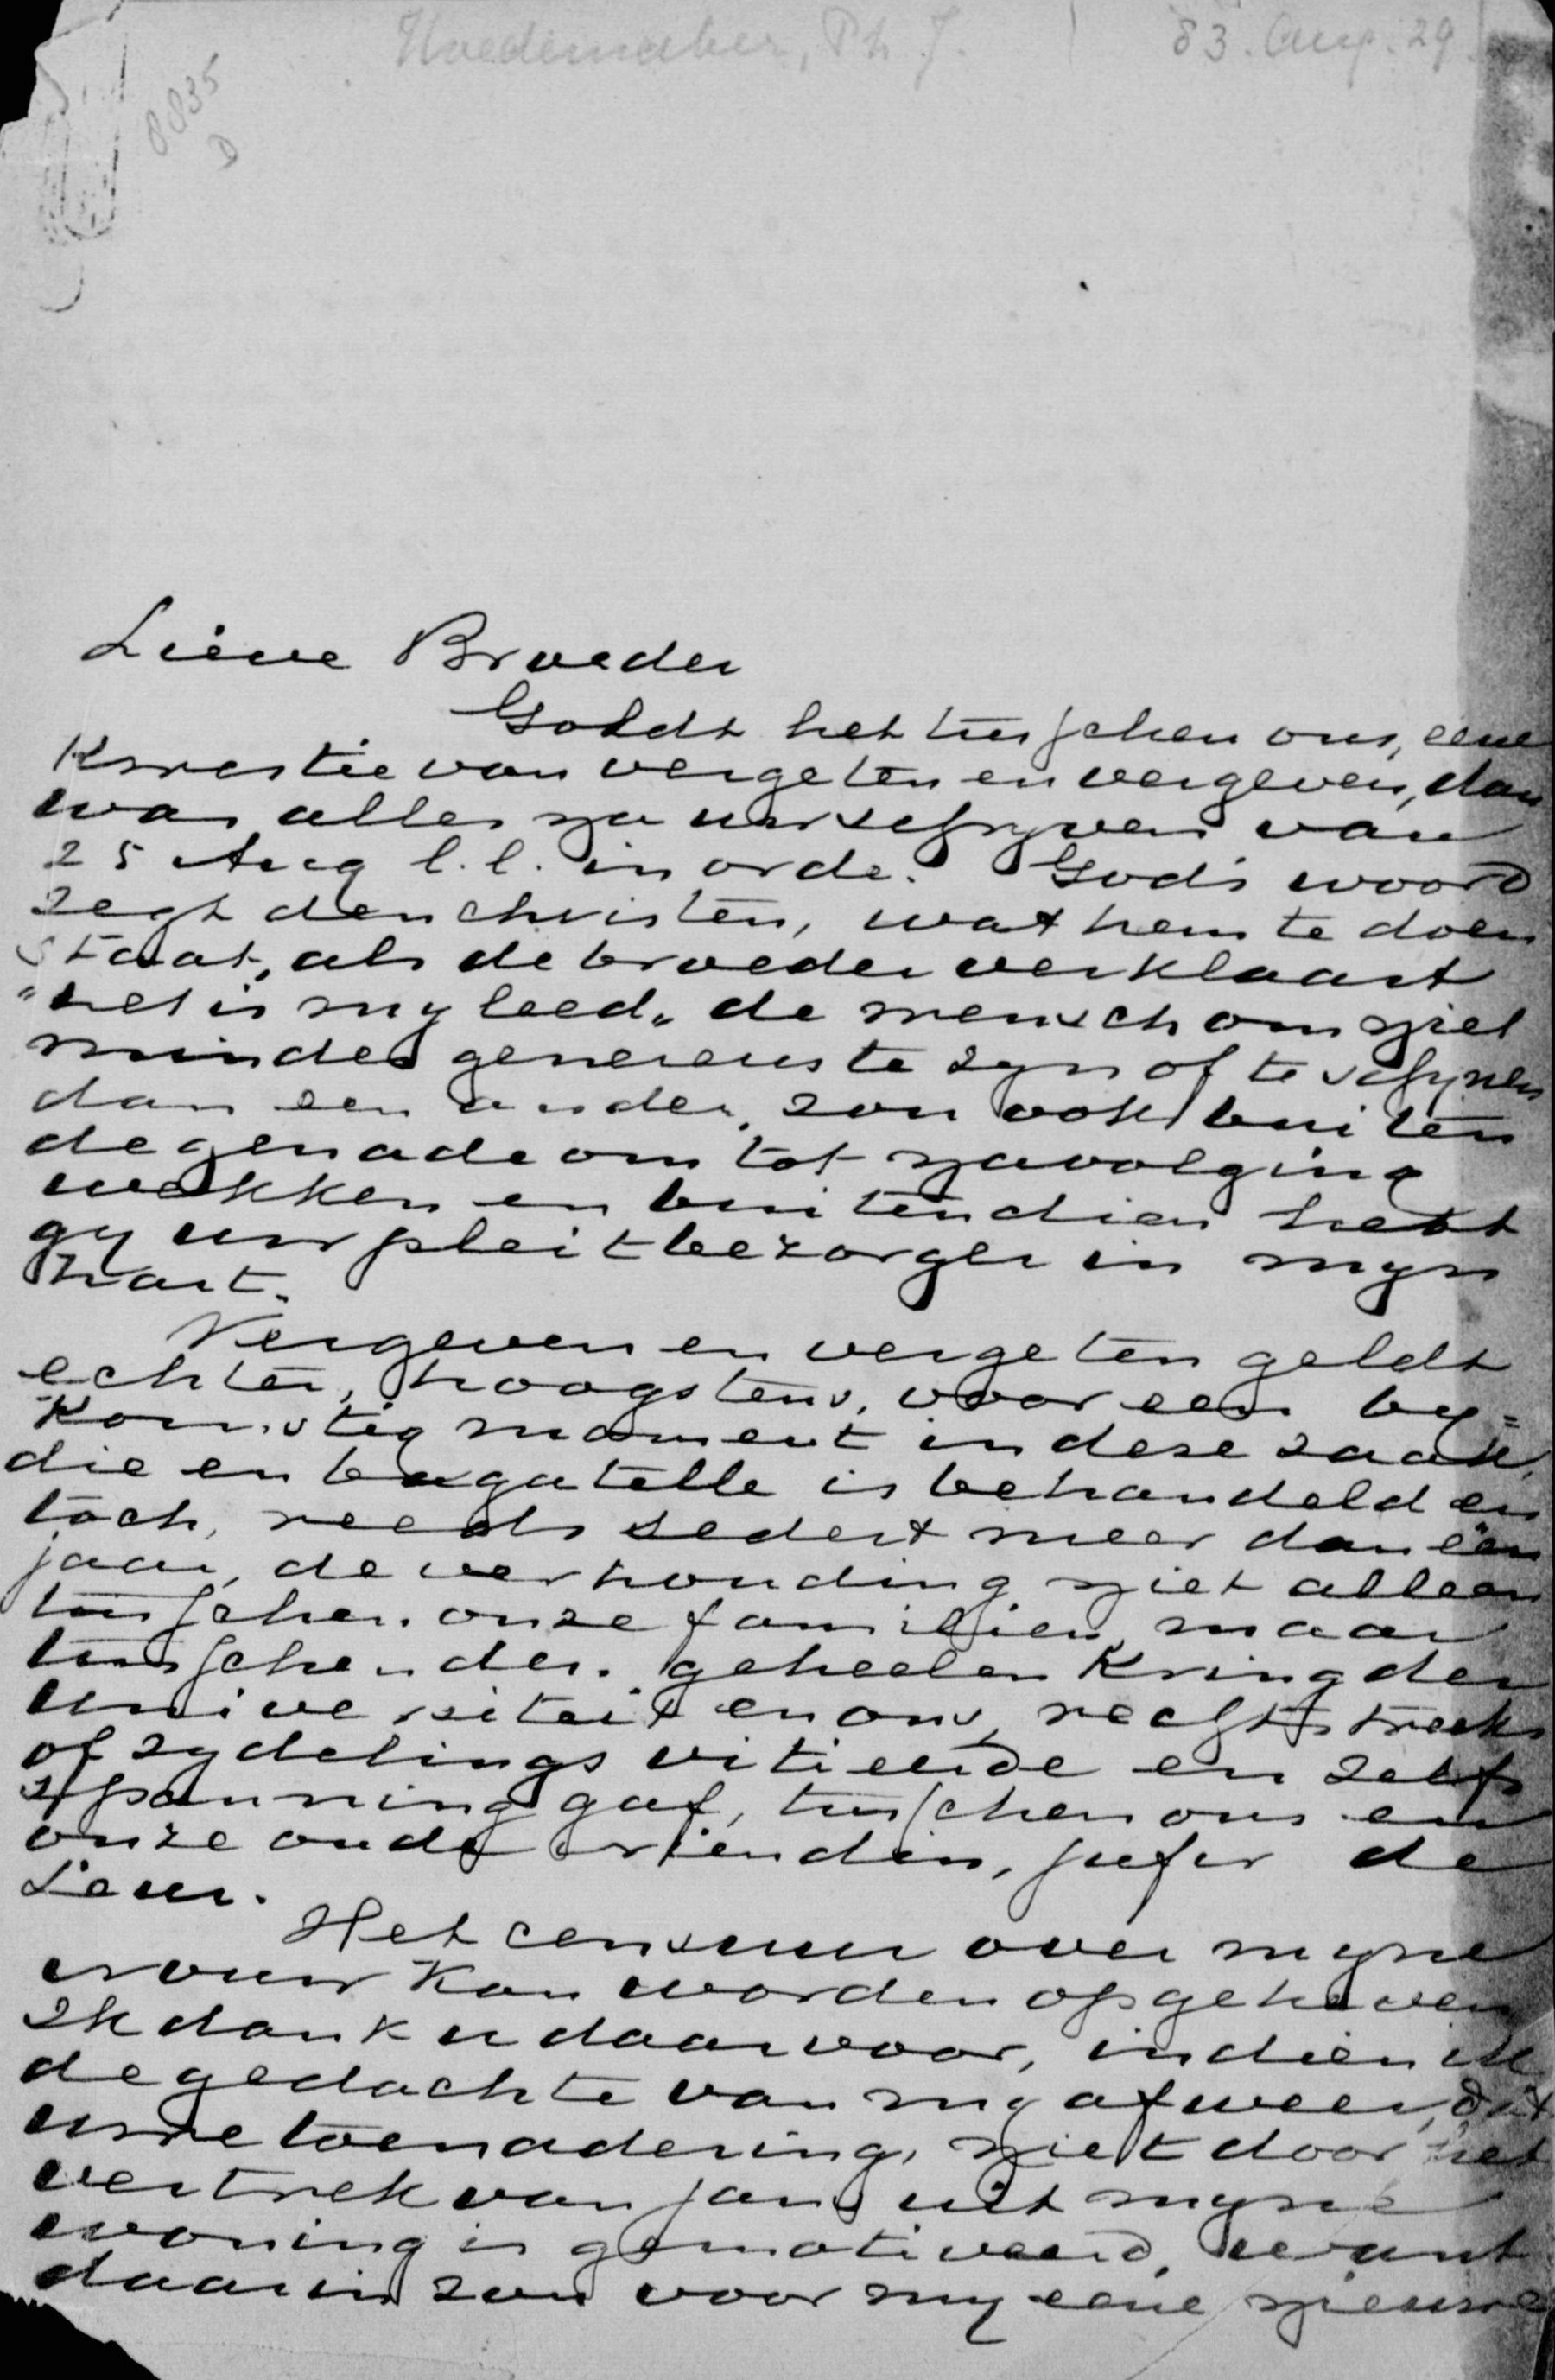 Hoedemaker, Ph. J. 83. Aug. 29
0035
D
Lieve Broeder
Goldt het tusschen ons, eene
Kwestie van vergeten en vergeven, dan
was alles na uw schrijven van
25 Aug l.l. in orde. Gods woord
zegt den christen, wat hem te doen
staat, als de broeder verklaart
"het is mij leed" de mensch om niet
minder genereus te zijn of te schijnen
dan een ander, zou ook buiten
de genade om tot navolging
wekken en buitendien hebt
gij uw pleitbezorger in mijn
hart.
Vergeven en vergeten geldt
echter, hoogstens, voor een bij=
komstig moment in deze zaak,
die en bagatelle is behandeld en
toch, reeds sedert meer dan één
jaar, de verhouding niet alleen
tusschen onze familien, maar
tusschen den geheelen Kring der
universiteit en ons, rechtstreeks
of zijdelings vitieerde en zelfs
spanning gaf, tusschen ons en
onze oude vriendin, jufr de
Leeuw.
Het censuur over mijne
vrouw kan worden opgeheven
Ik dank u daarvoor, indien ik
de gedachte van mij afweer, dat
uwe toenadering, niet door het
vertrek van Jans uit mijne
woning is gemotiveerd, want
daarin zou voor mij eene nieuwe